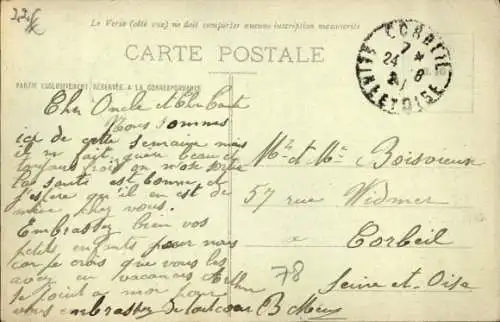 Le Verso (côté vue) ne doit comporter aucune inscription manuscrite
CARTE POSTALE
CORBEIL
7 *
24 - 8
SEINE ET OISE
PARTIE EXCLUSIVEMENT RÉSERVÉE A LA CORRESPONDANCE
Cher Oncle et Cher Tante
Nous sommes
ici de cette semaine mais
il ne fait guère beau
toujours froid on
La santé est bonne et
j'espère qu'il en est de
même chez vous.
Embrassez bien vos
petits enfants pour nous
car je crois que vous les
avez en vacances
se joint a moi pour
vous embrasser de tout coeur B
Mr et Mme Boisvieux
57 rue Widmer
Corbeil
Seine et Oise
78